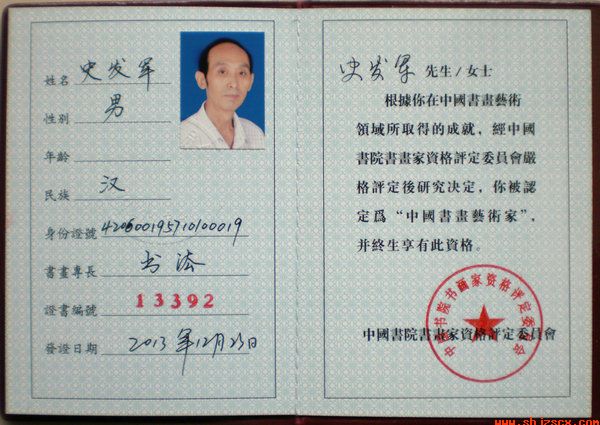 姓名 史发军
性别 男
年齡
民族 汉
身份證號 420600195710100019
書畫專長 书法
證書編號 13392
發證日期 2013年12月23日
史发军 先生/女士
根據你在中國書畫藝術
領域所取得的成就，經中國
書院書畫家資格評定委員會嚴
格評定後研究决定，你被認
定爲“中國書畫藝術家”，
并終生享有此資格。
中国书院书画家资格评定委员会
中國書院書畫家資格評定委員會
www.shjzscx.com